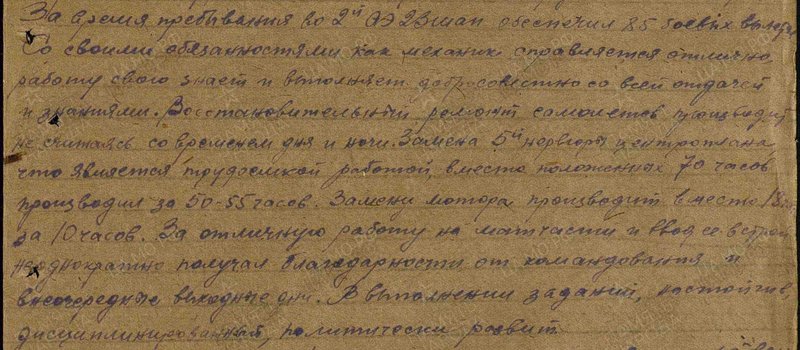 За время пребывания во 2й АЭ 23шап обеспечил 85 боевых вылетов
Со своими обязанностями как механик справляется отлично
работу свою знает и выполняет добросовестно со всей отдачей
и знаниями. Восстановительный ремонт самолетов производит
не считаясь со временем дня и ночи. Замена 5й нервюры центроплана
что является трудоемкой работой, вместо положенных 70 часов
производил за 50-55 часов. Замени мотора производит вместо 18
за 10 часов. За отличную работу на матчасти и ввод ее в строй
неоднократно получал благодарности от командования и
внеочередные выходные дни. В выполнении заданий, настойчив,
дисциплинированный, политически развит